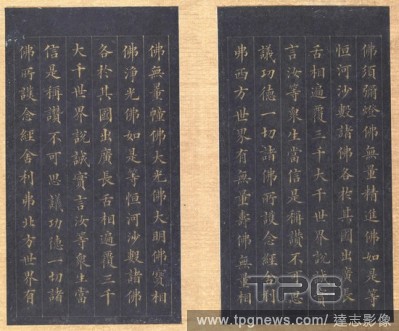 佛須彌燈佛無量精進佛如是等
恒河沙數諸佛各於其國出廣長
舌相遍覆三千大千世界說誠實
言汝等衆生當信是稱讚不可思
議功德一切諸佛所護念經舍利
弗西方世界有無量壽佛無量相
佛無量幢佛大光佛大明佛寶相
佛淨光佛如是等恒河沙數諸佛
各於其國出廣長舌相遍覆三千
大千世界說誠實言汝等衆生當
信是稱讚不可思議功德一切諸
佛所護念經舍利弗北方世界有
TPG
www.tpgnews.com / 達志影像